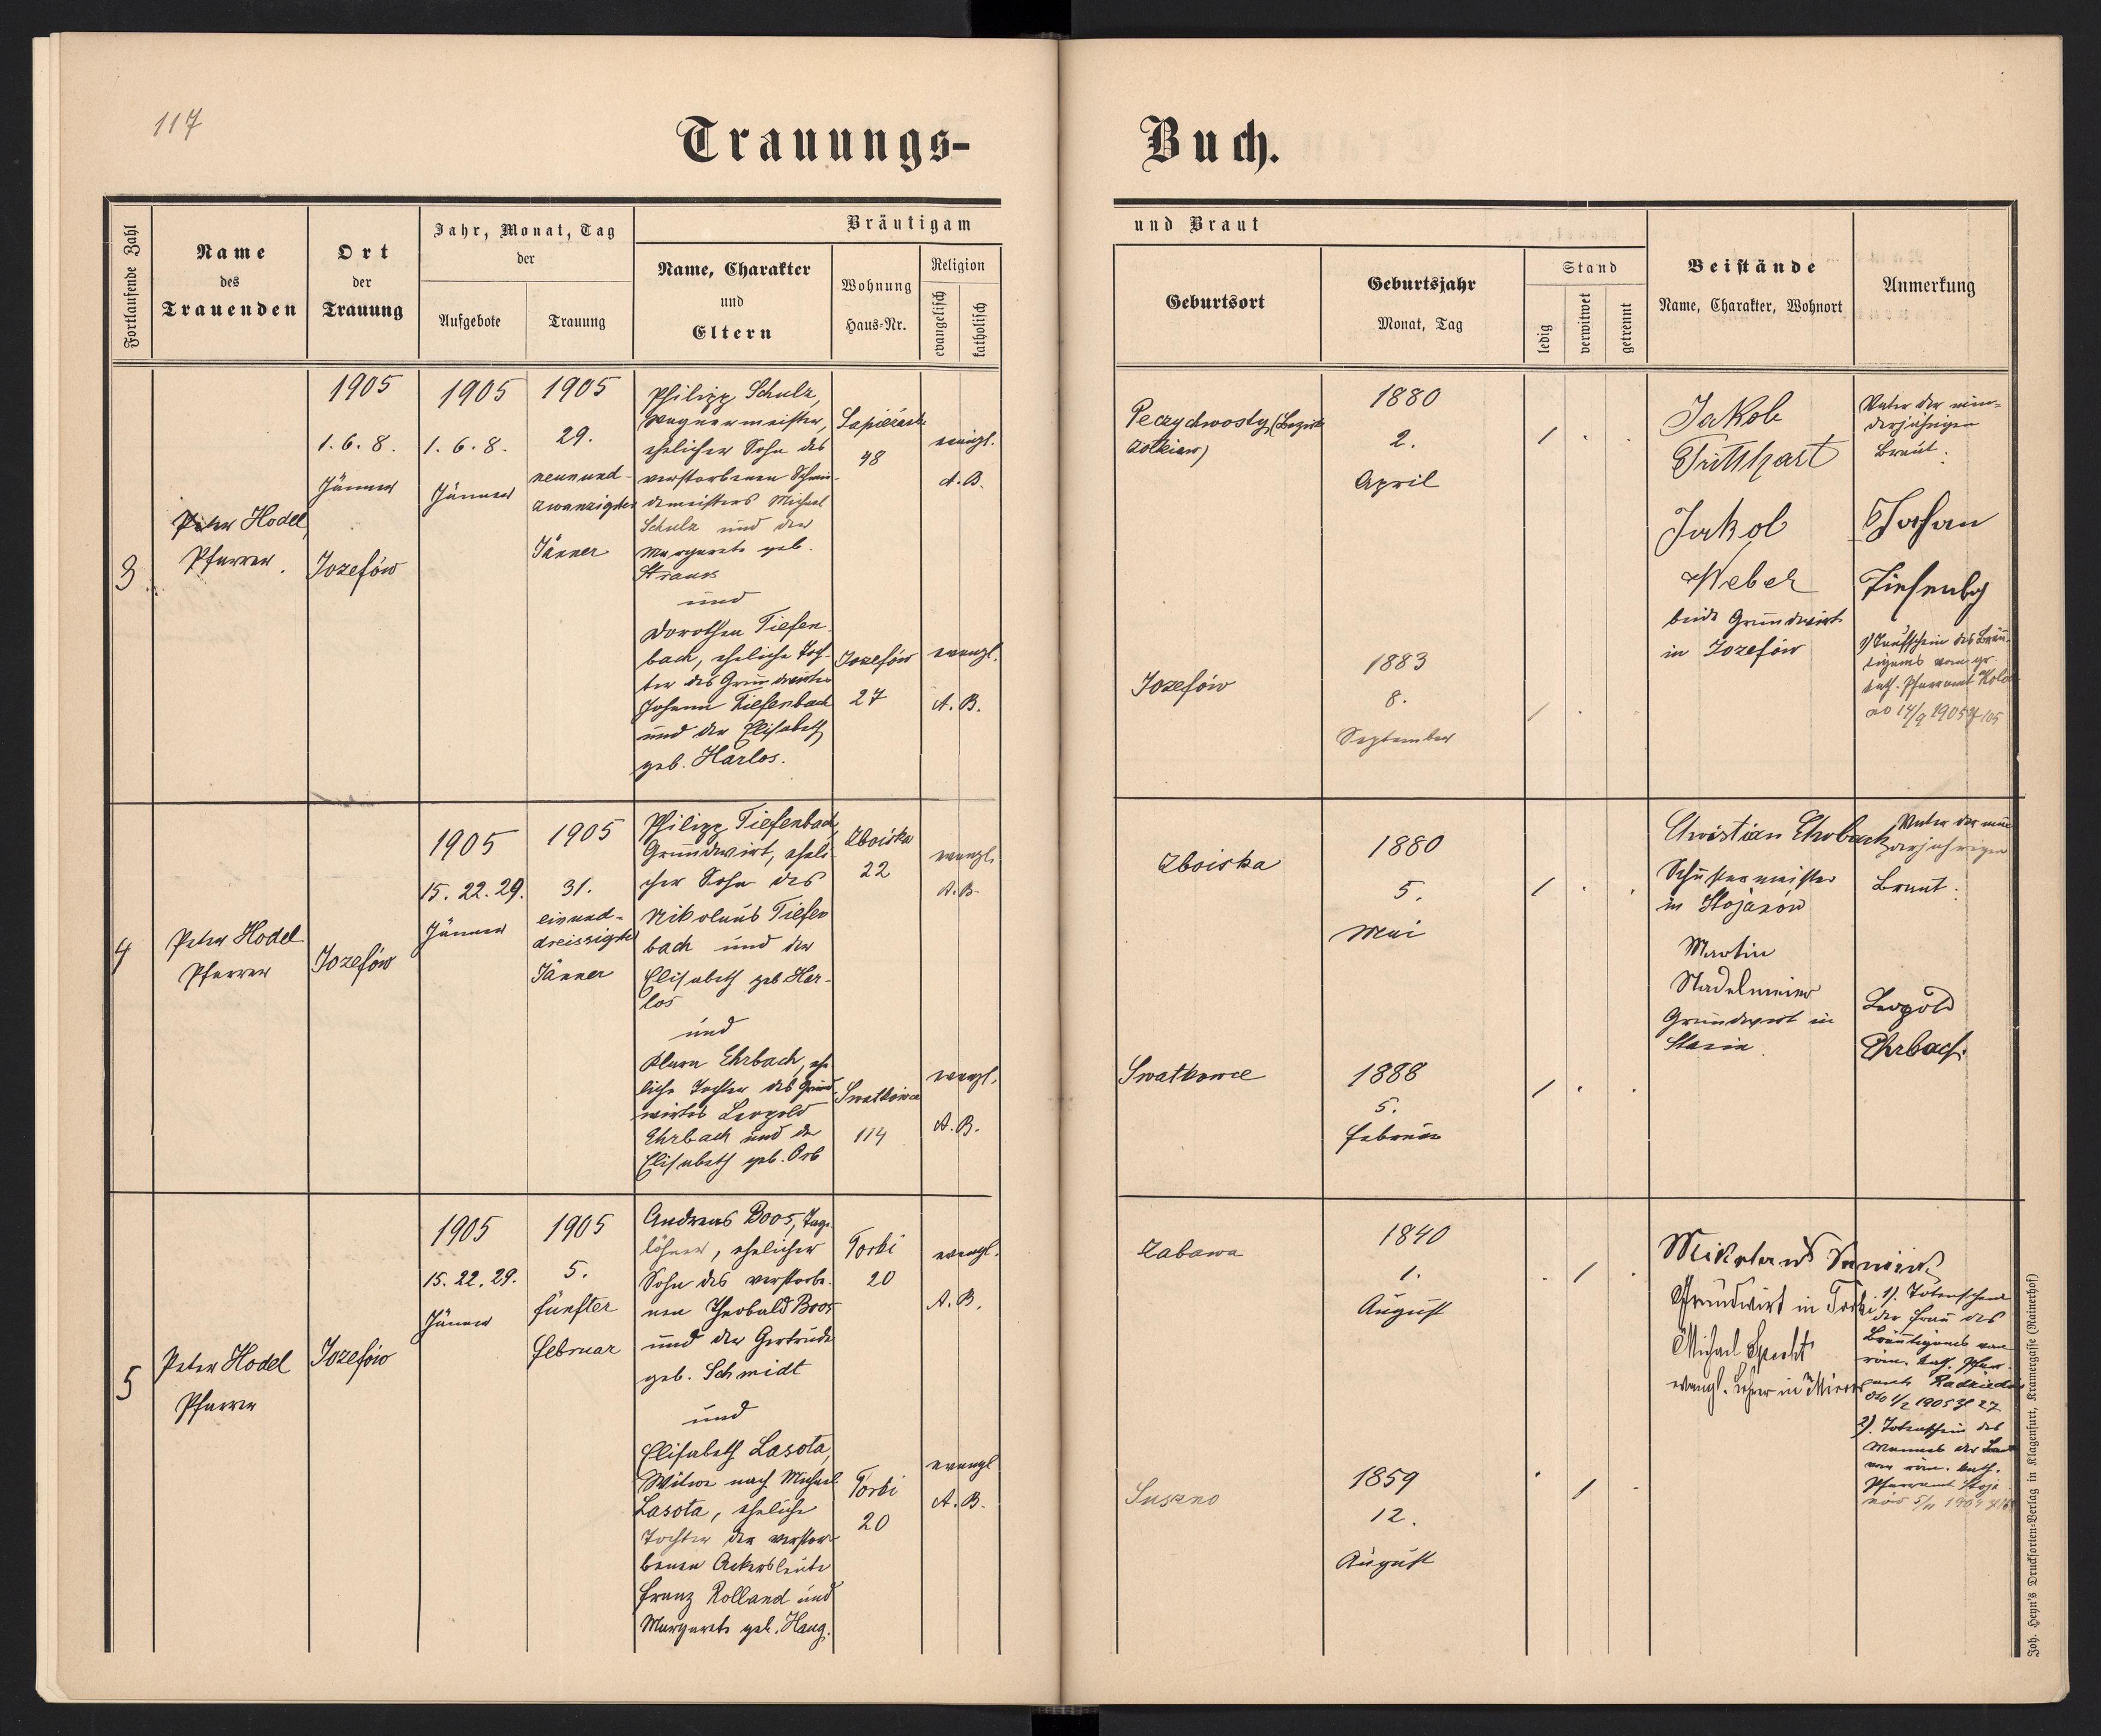 117
Trauungs-
Buch.
Fortlaufende Zahl
Name
des
Trauenden
Ort
der
Trauung
Jahr, Monat, Tag
der
Aufgebote
Trauung
Bräutigam
Name, Charakter
und
Eltern
Wohnung
Haus-Nr.
Religion
evangelisch
katholisch
und Braut
Geburtsort
Geburtsjahr
Monat, Tag
Stand
ledig
verwitwet
getrennt
Beistände
Name, Charakter, Wohnort
Anmerkung
3
Peter Hodel,
Pfarrer.
1905
1. 6. 8.
Jänner
Jozefów
1905
1. 6. 8.
Jänner
1905
29.
neunund-
zwanzigster
Jänner
Philipp Schulz,
Wagnermeister,
ehelicher Sohn des
verstorbenen Schmie-
demeisters Michael
Schulz und der
Margareta geb.
Strauss
und
Dorothea Tiefen-
bach, eheliche Toch-
ter des Grundwirtes
Johann Tiefenbach
und der Elisabeth
geb. Harlos.
48
evangl.
A. B.
Jozefów
27
evangl.
A. B.
(Bezirk
Żółkiew)
1880
2.
April
Jozefów
1883
8.
September
Jakob
Jakob
Weber
beide Grundwirte
in Jozefów
Vater der min-
derjährigen
Braut.
Johan
1) Taufschein des Bräu-
tigams vom gr.
kath. Pfarramt
4
Peter Hodel
Pfarrer
Jozefów
1905
15. 22. 29.
Jänner
1905
31.
einund-
dreissigster
Jänner
Philipp Tiefenbach,
Grundwirt, eheli-
cher Sohn des
Nikolaus Tiefen
bach und der
Elisabeth geb Har-
los
und
Klara Ehrbach, ehe
liche Tochter des Grund-
wirtes Leopold
Ehrbach und der
Elisabeth geb. Orb
Zboiska
22
evangl.
A. B.
Swatkowce
114
evangl.
A. B.
Zboiska
1880
5.
Mai
Swatkowce
1888
5.
Februar
Christian Ehrbach
Schustermeister
in Stojanów
Martin
Stadelmeier
Grundwirt in
Vater der min
derjährigen
Braut.
Leopold
Ehrbach.
5
Peter Hodel
Pfarrer
Jozefów
1905
15. 22. 29.
Jänner
1905
5.
fünfter
Februar
Andreas Boos, Tag-
löhner, ehelicher
Sohn des verstorbe-
nen Theobald Boos
und der Gertrude
geb. Schmidt
und
Elisabeth Lasota,
Witwe nach Michael
Lasota, eheliche
Tochter der verstor-
benen Ackersleute
Franz Rolland und
Margareta geb. Haug.
Torki
20
evangl.
A. B.
Torki
20
evangl
A. B.
Zabawa
1840
1.
August
Suszno
1859
12.
August
Grundwirt in Torki
Michael Specht
evangl. Lehrer in
1). Totenschein
der Frau des
Bräutigams vom
röm. kath. Pfarr-
amte
dto 1/2 1905 Z 27
2). Totenschein des
Mannes der Braut
vom röm. kath.
Pfarramt Stoja
nów 5/11 1904
Joh. Heyn's Drucksorten-Verlag in Klagenfurt, Kramergasse (Rainerhof)